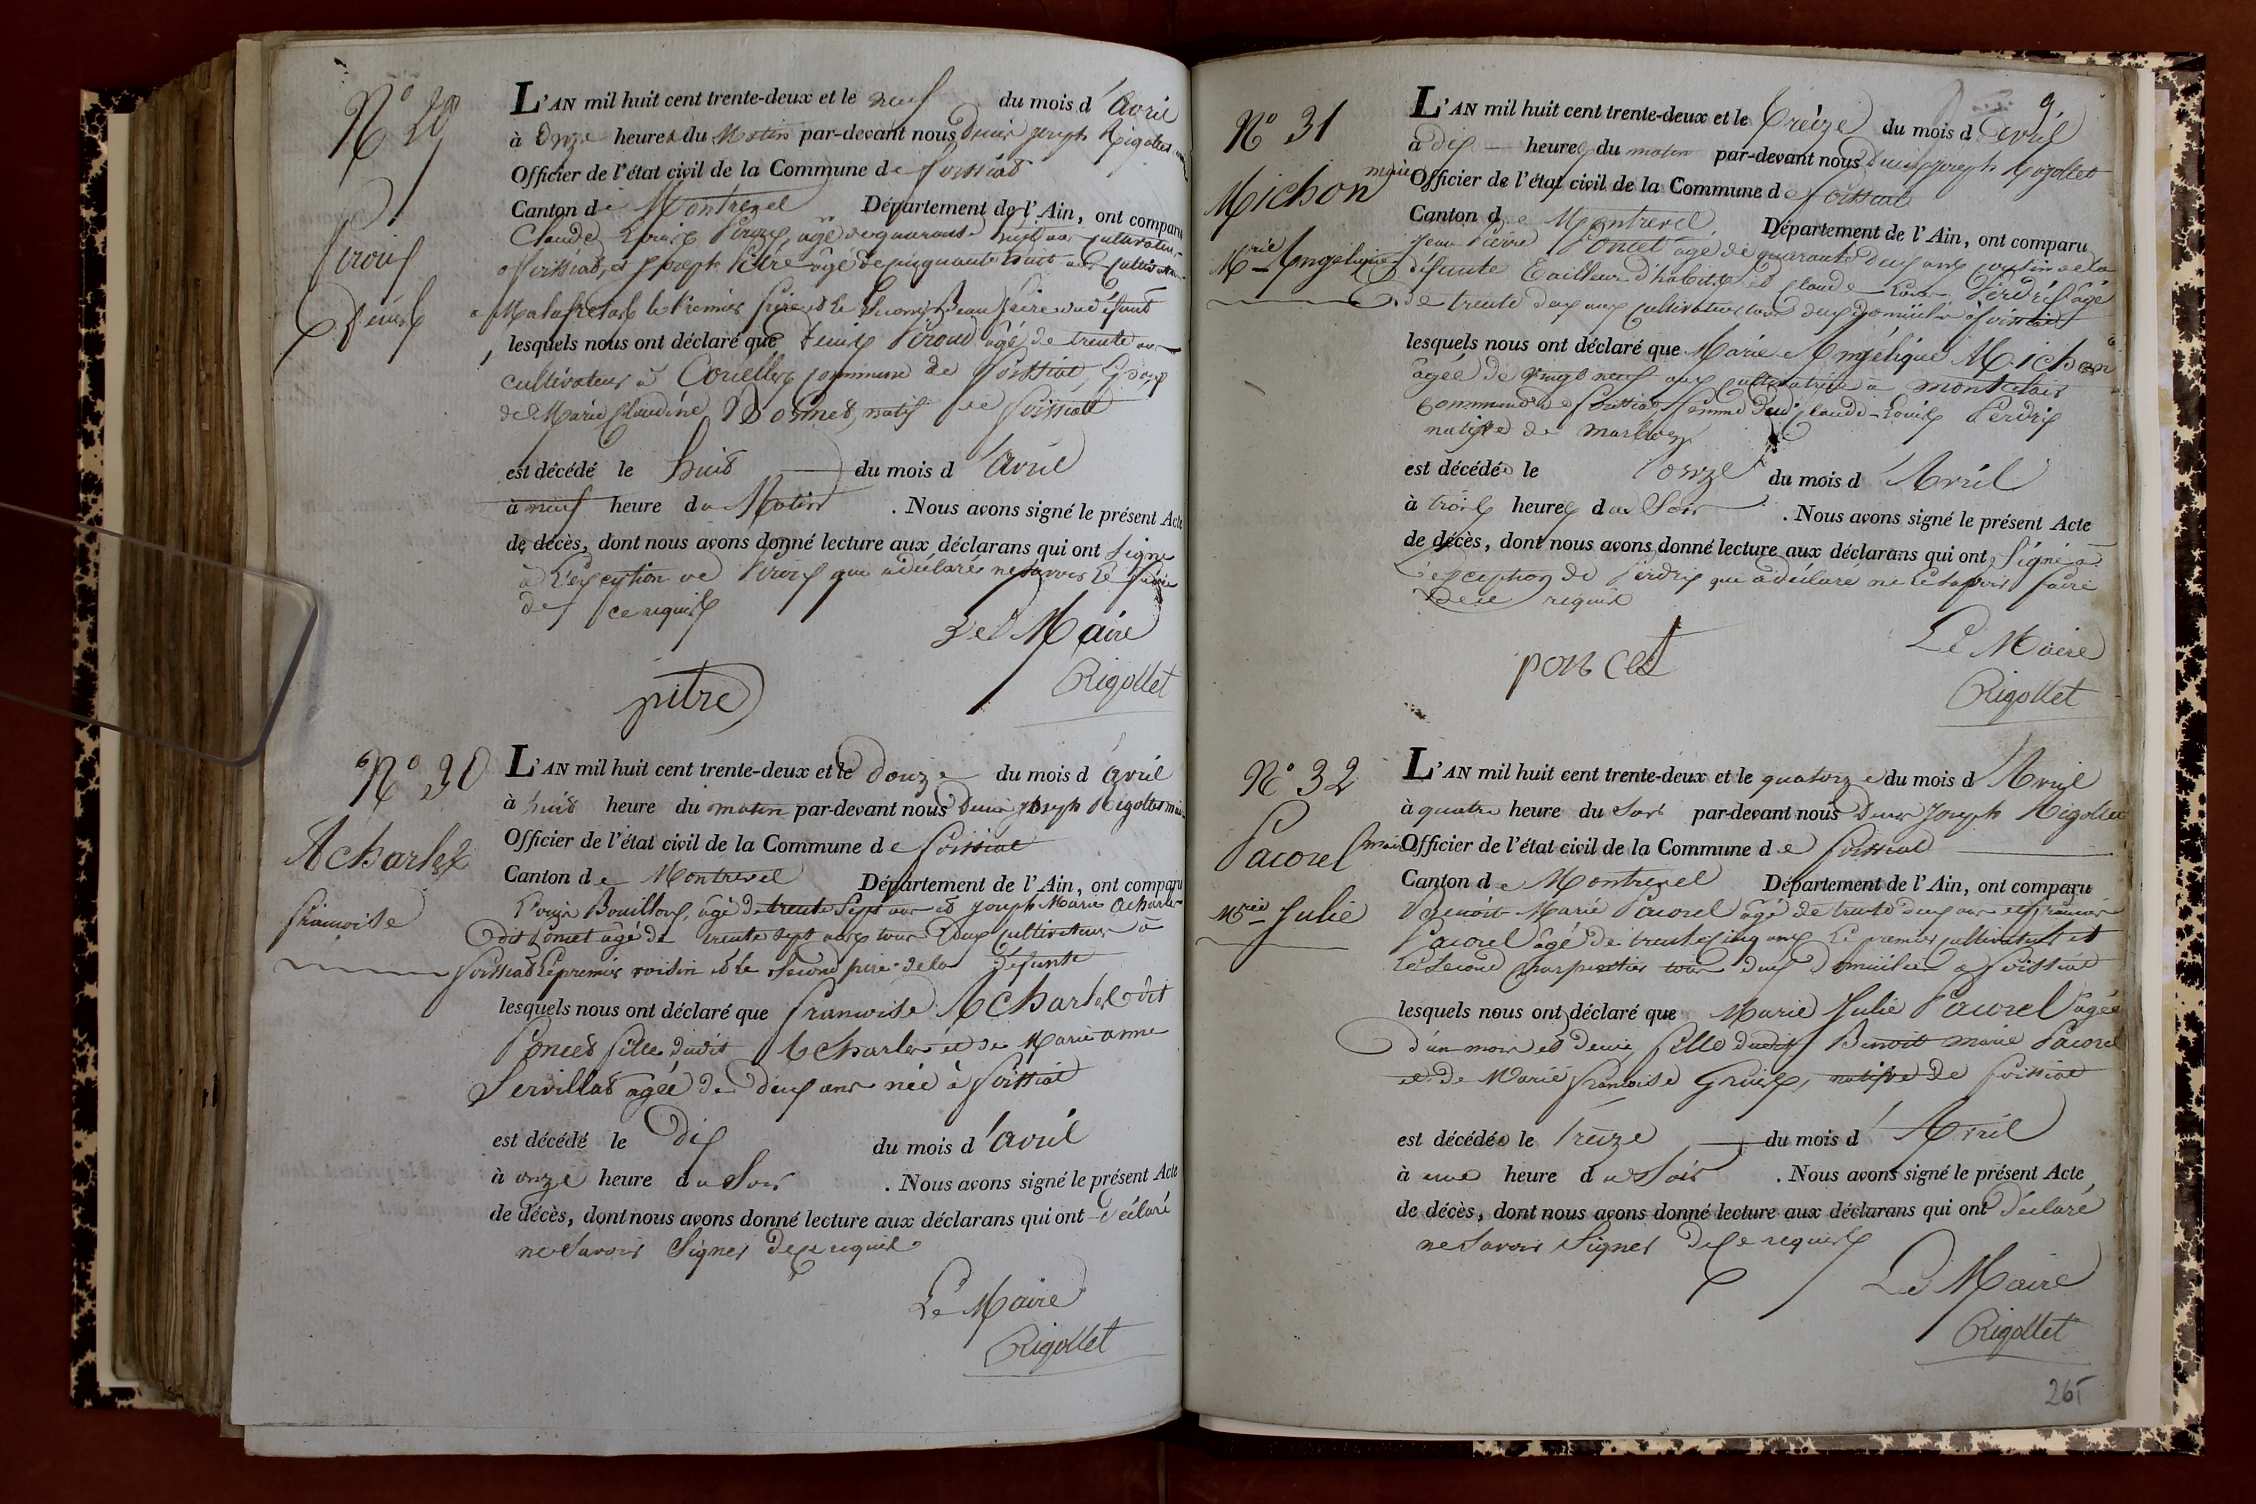 N° 29
Piroux
Denis
L'AN mil huit cent trente-deux et le neuf du mois d'avril
à onze heures du Matin par-devant nous Denis Joseph Rigollet
Officier de l'état civil de la Commune de foissiat
Canton de Montrevel Département de l'Ain, ont comparu
Claude Louis Piroux, âgé de quarante sept ans cultivateur
foissiat, et Joseph Pitre âgé de cinquante huit ans cultivateur
a Malafretas le Premier frère et le Second Beau frère du défunt
lesquels nous ont déclaré que Denis Piroux âgé de trente ans
cultivateur à Corcelles commune de foissiat Epoux
de Marie Claudine natif de foissiat
est décédé le huit du mois d'avril
à neuf heure du Matin . Nous avons signé le présent Acte
de décès, dont nous avons donné lecture aux déclarans qui ont signe
à L'exception de Piroux qui a déclaré ne savoir le faire
de ce requis
Le Maire
Rigollet
pitre
N° 30
Acharles
françoise
L'AN mil huit cent trente-deux et le douze du mois d'avril
à huit heure du matin par-devant nous Denis Joseph Rigollet maire
Officier de l'état civil de la Commune de foissiat
Canton de Montrevel Département de l'Ain, ont comparu
Louis Bouilloux, âgé de trente sept ans et Joseph Marie Acharles
dit Poncet âgé de trente sept ans tous deux cultivateurs à
foissiat Le premier voisin et le second père de la défunte
lesquels nous ont déclaré que francoise Acharles dit
Poncet fille dudit Acharles et de Marie anne
Servillat agée de deux ans née à foissiat
est décédé le dix du mois d'avril
à onze heure du Soir . Nous avons signé le présent Acte
de décès, dont nous avons donné lecture aux déclarans qui ont déclaré
ne Savoir Signer de ce requis
Le Maire
Rigollet
9
N° 31
Michon
Mrie Angelique
L'AN mil huit cent trente-deux et le treize du mois d'avril
à dix heures du matin par-devant nous Denis Joseph Rigollet
maire Officier de l'état civil de la Commune de foissiat
Canton de Montrevel Département de l'Ain, ont comparu
Jean Pierre Poncet âgé de quarante deux ans cousin de la
défunte Tailleur d'habits et Claude Louis Perdrix âgé
de trente deux ans cultivateur tous deux domiciliés à foissiat
lesquels nous ont déclaré que Marie Angélique Michon
agée de vingt neuf ans cultivatrice a
Commune de foissiat femme dud. Claude-Louis Perdrix
native de marboz
est décédée le onze du mois d'Avril
à trois heures du Soir . Nous avons signé le présent Acte
de décès, dont nous avons donné lecture aux déclarans qui ont Signé à
L'exception de Perdrix qui a déclaré ne le savoir faire
de ce requis
Le Maire
Rigollet
poncet
N° 32
Pacorel
Mrie Julie
L'AN mil huit cent trente-deux et le quatorze du mois d'Avril
à quatre heure du Soir par-devant nous Denis Joseph Rigollet
maire Officier de l'état civil de la Commune de foissiat
Canton de Montrevel Département de l'Ain, ont comparu
Benoit Marie Pacorel âgé de trente deux ans et françois
Pacorel âgé de trente cinq ans Le premier cultivateur et
Le second charpentier tous deux domiciliés a foissiat
lesquels nous ont déclaré que Marie Julie Pacorel agée
d'un mois et demi, fille dudit Benoit marie Pacorel
et de Marie francoise native de foissiat
est décédée le treize du mois d'Avril
à une heure du Soir . Nous avons signé le présent Acte
de décès, dont nous avons donné lecture aux déclarans qui ont déclaré
ne Savoir Signer de ce requis
Le Maire
Rigollet
265